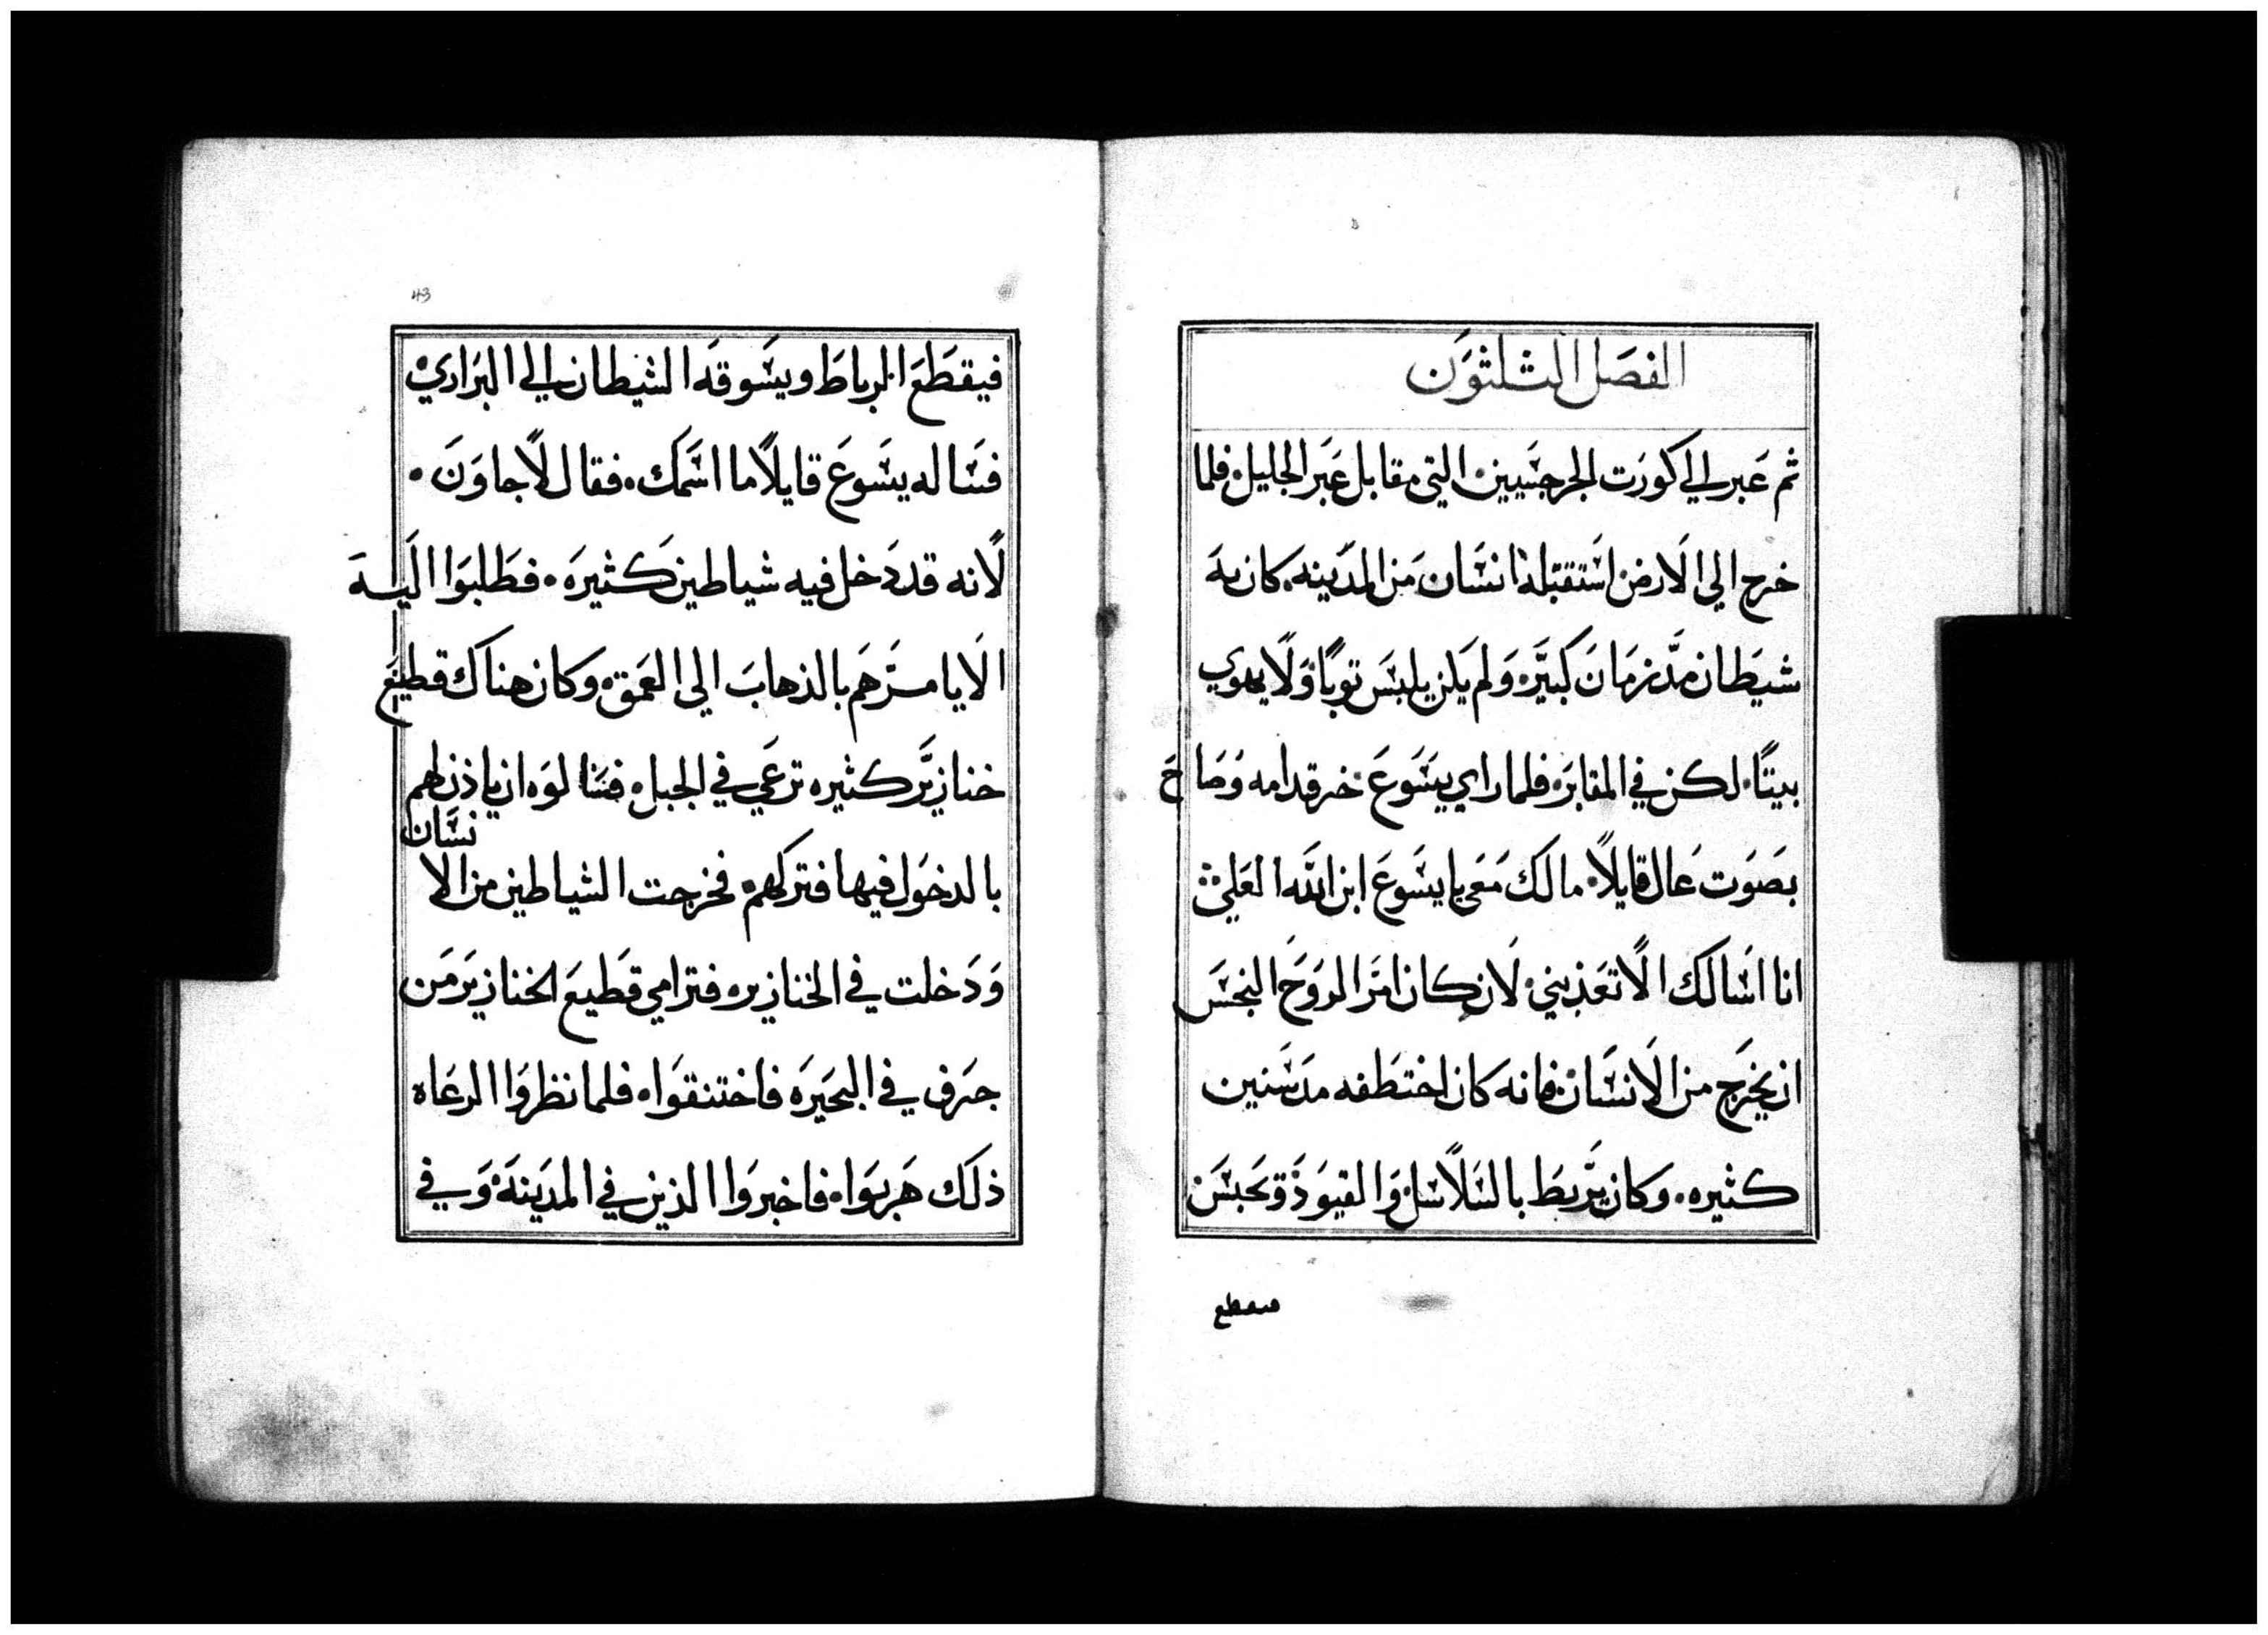 الفصَل الثلثوَن
ثم عَبر الي كورَت الجرجسَيين۰ التي مقابل عَبر الجليل۰ فلما
خرج الي الَارض اسَتقبَله انسَان مَن المدَينه۰ كان به
شيَطان مدَ زمَانَ كبيَر۰ وَلم يَكن يلبسَ ثوبًا۰ وَلَا ياوي
بيتًا۰ لكن في المقابَر۰ فلما راي يسَوعَ خر قدامه وَصَاحَ
بصَوَت عَال قايلاً۰ مالكَ مَعَي يا يسَوعَ ابن اللَّه العَلي
انا اسَالك الَا تعَذبني۰ لَان كان امرَ الروَحَ النجسَ
ان يخرَج من الَانسَان۰ فانه كان اختطَفه مدَ سَنين
كثيره۰ وَكان يَربطَ بالسَلَاسَل۰ وَالقيوَد وَتحَبسَ
فيقطع
43
فيقطَعَ الرباطَ ويسَوقهَ الشيطان الي البرَاري
فسَاله يسَوعَ قايلاً ما اسَمك۰ فقال لَاجاوَنَ۰
لَانه قد دَخل فيه شياطين كَثيرَه۰ فطَلبوَا اليَهَ
الَا يامرَهَم بالذهابَ الي العَمَق۰ وَكان هناك قطيَعَ
خنازيَر كثيره ترعَي في الجبل۰ فسَالوَه ان ياذن لهم
بالدخوَل فيها فتركهم۰ فخرجت الشياطين من الانسَان
وَدَخلت في الخنازير۰ فترامي قطَيعَ الخنازيرَ مَن
جرَف في البحَيرَه فاختنقوَا۰ فلما نظروَا الرعَاه
ذلكَ هَربوَا۰ فاخبروَا الذين في المدَينهَ۰ وَفي